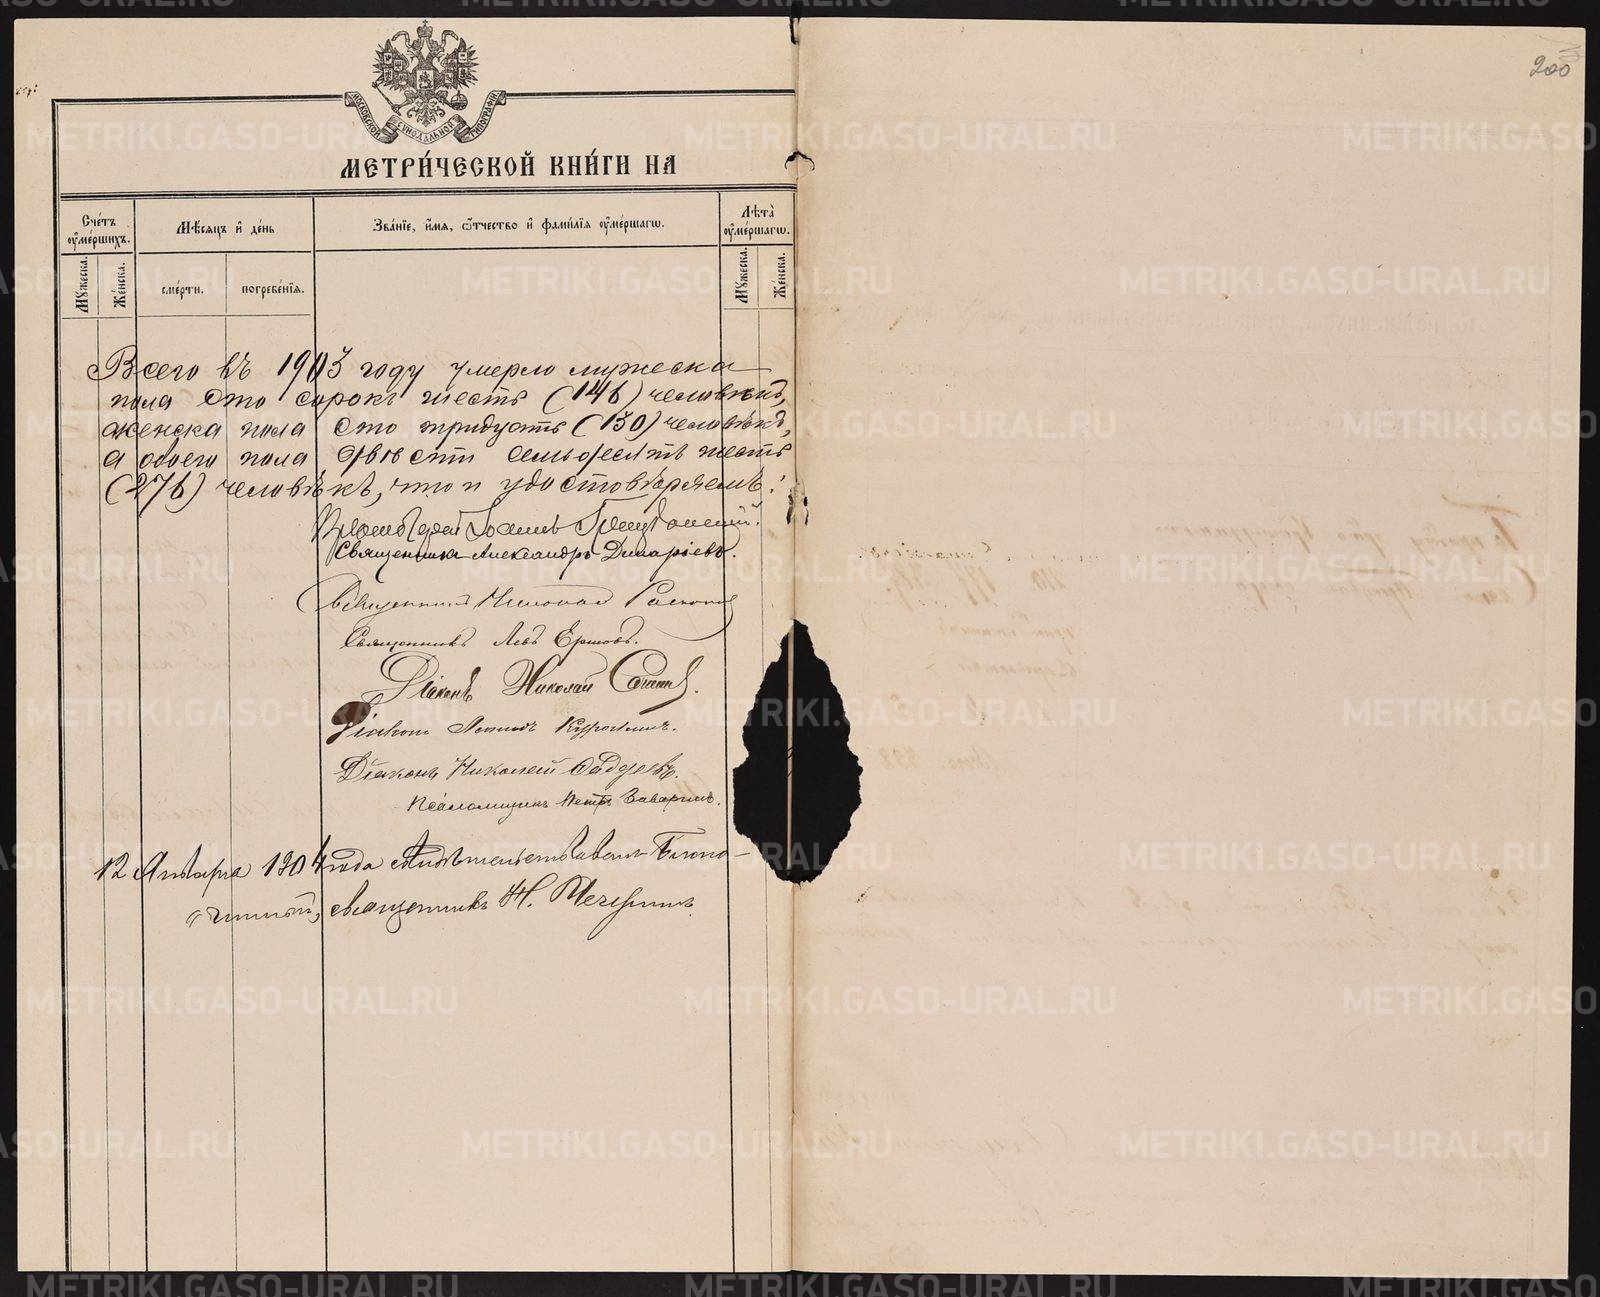 200
МОСКОВСКОЙ СѴНОДАЛЬНОЙ ТИПОГРАФІИ
МЕТРИ́ЧЕСКОЙ КНИ́ГИ НА
Сче́тъ оу҆ме́ршихъ.
Мѣ́сяцъ и҆ де́нь
Зва́нїе, и҆́мя, ѻ҆́тчество и҆ фами́лїя оу҆ме́ршагѡ.
Лѣта̀ оу҆ме́ршагѡ.
Му́жеска.
Же́нска.
сме́рти.
погребе́нїя.
Му́жеска.
Же́нска.
Всего въ 1903 году умерло мужеска
пола сто сорокъ шесть (146) человѣкъ,
женска пола сто тридцать (130) человѣкъ,
а обоего пола двѣсти семьдесятъ шесть
(276) человѣкъ, что и удостовѣряемъ:
Протоіерей Іоаннъ
Священникъ Александръ Димаріевъ.
Священникъ Николай
Священникъ Левъ Ершовъ.
Діаконъ Николай
Діаконъ Леонидъ
Діаконъ Николай Фаддеевъ.
Псаломщикъ Петръ Заваринъ.
12 Января 1904 года свидѣтельствовалъ Благо-
чинный, священникъ Н.
METRIKI.GASO-URAL.RU